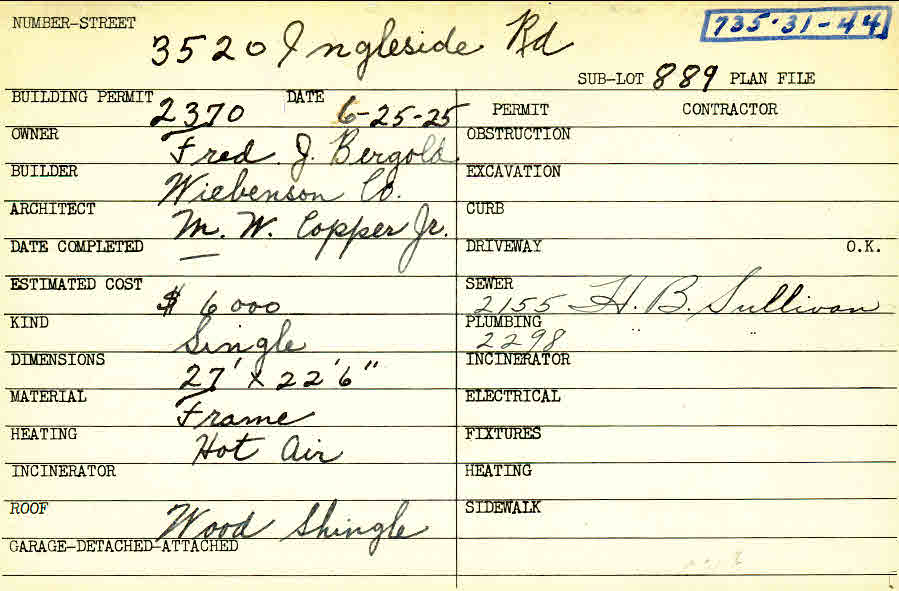 NUMBER-STREET 3520 Ingleside Rd 735-31-44
SUB-LOT 889 PLAN FILE
BUILDING PERMIT 2370 DATE 6-25-25 PERMIT CONTRACTOR
OWNER Fred J. Bergold OBSTRUCTION
BUILDER Wiebenson Co. EXCAVATION
ARCHITECT M. W. Copper Jr. CURB
DATE COMPLETED — DRIVEWAY O.K.
ESTIMATED COST $6000 SEWER 2155 H. B. Sullivan
KIND Single PLUMBING 2298 " "
DIMENSIONS 27' x 22'6" INCINERATOR
MATERIAL Frame ELECTRICAL
HEATING Hot Air FIXTURES
INCINERATOR HEATING
ROOF Wood Shingle SIDEWALK
GARAGE-DETACHED-ATTACHED